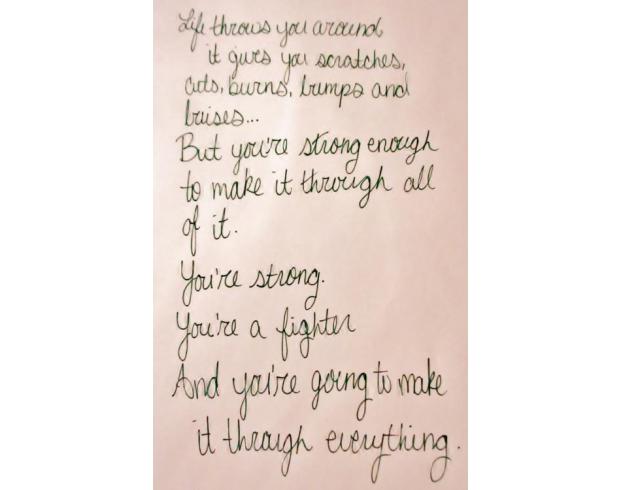 Life throws you around
it gives you scratches,
cuts, burns, bumps and
bruises...
But you're strong enough
to make it through all
of it.
You're strong.
You're a fighter
And you're going to make
it through everything.